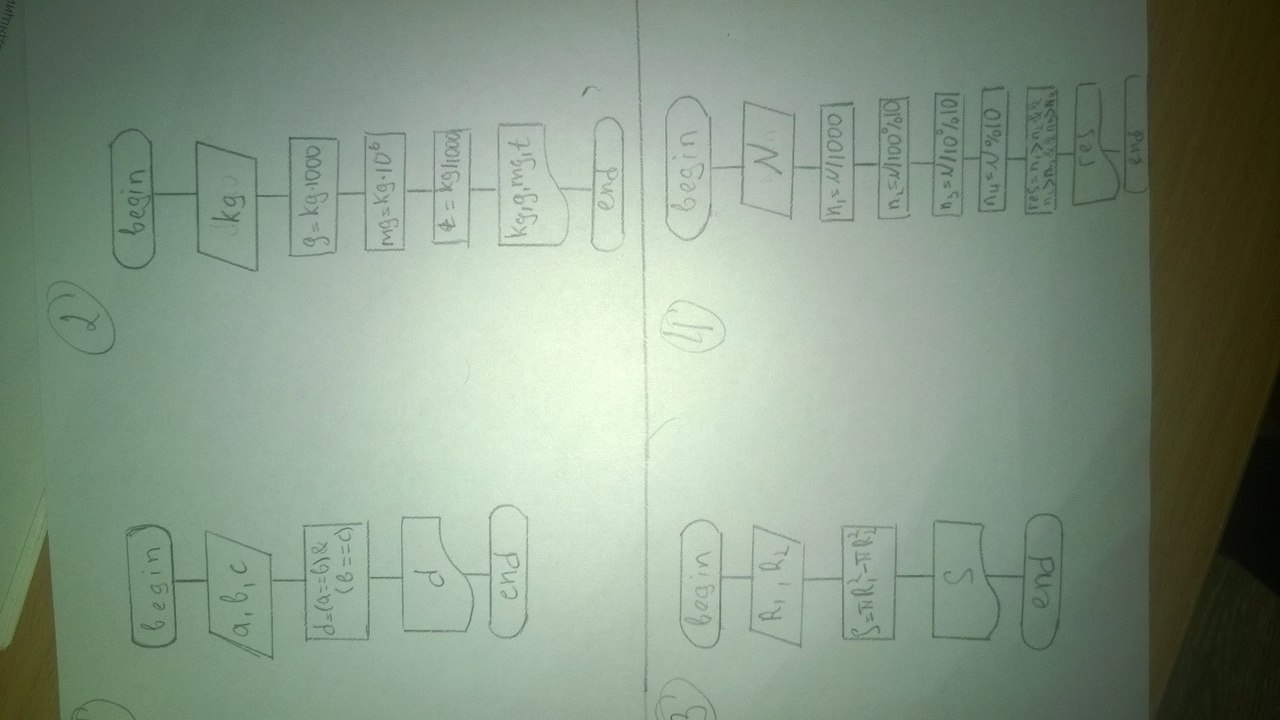 begin
a, b, c
d=(a==b)&
(b==c)
d
end
2
begin
kg
g=kg·1000
mg=kg·10⁶
t=kg/1000
kg, g, mg, t
end
3
begin
R₁, R₂
S=πR₁²-πR₂²
S
end
4
begin
N
n₁=N/1000
n₂=N/100%10
n₃=N/10%10
n₄=N%10
res
end